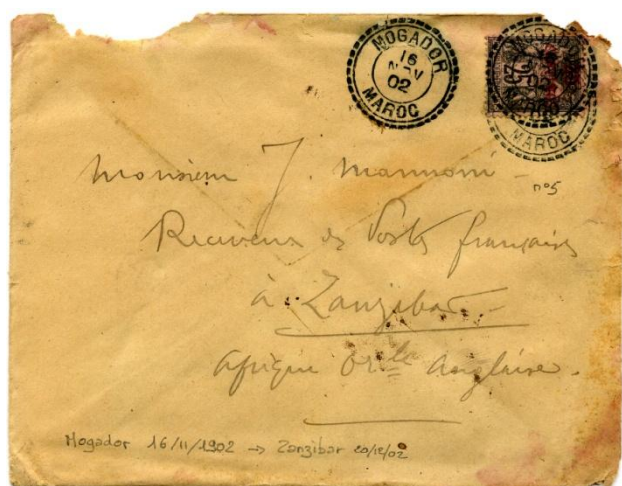 MOGADOR
16
NOV
02
MAROC
MOGADOR
16
02
MAROC
Monsieur J. Mannoni
n°5
Receveur des Postes françaises
à Zanzibar
Afrique Orle Anglaise.
Mogador 16/11/1902 → Zanzibar 20/12/02